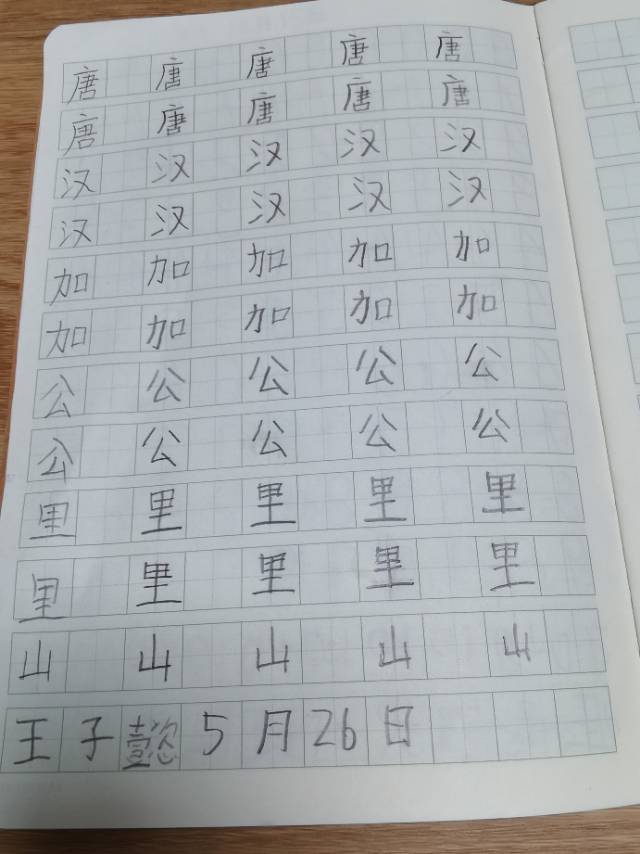 唐 唐 唐 唐 唐
唐 唐 唐 唐 唐
汉 汉 汉 汉 汉
汉 汉 汉 汉 汉
加 加 加 加 加
加 加 加 加 加
公 公 公 公 公
公 公 公 公 公
里 里 里 里 里
里 里 里 里 里
山 山 山 山 山
王子懿5月26日